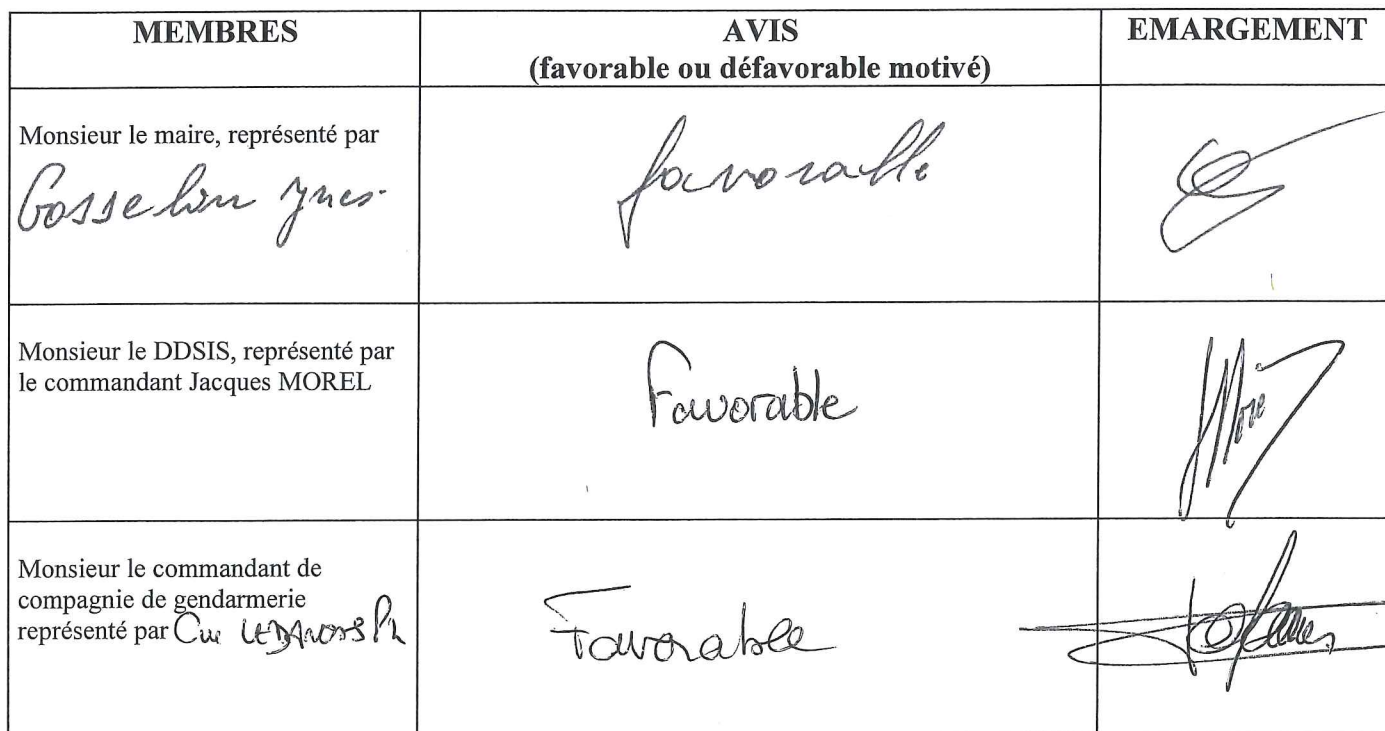 MEMBRES
AVIS
(favorable ou défavorable motivé)
EMARGEMENT
Monsieur le maire, représenté par
Gosselin Yves.
favorable
Monsieur le DDSIS, représenté par
le commandant Jacques MOREL
Favorable
Monsieur le commandant de
compagnie de gendarmerie
représenté par
Favorable